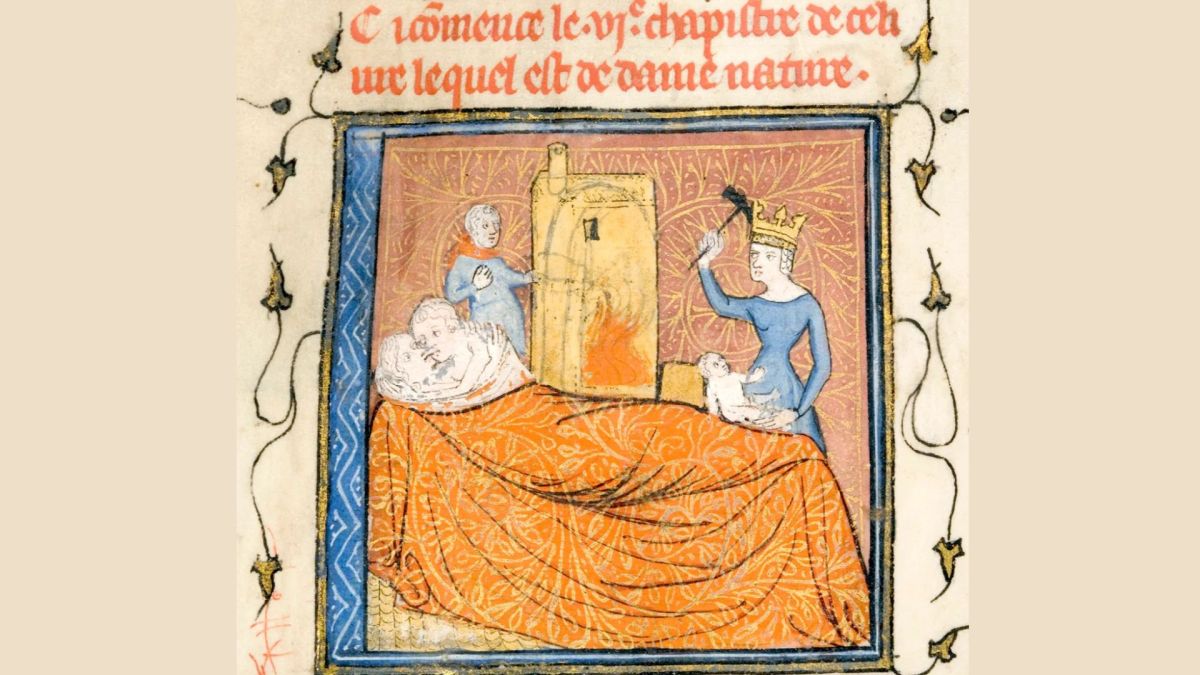 Ci cõmence le .vjᵉ. chapistre de celi
ure lequel est de dame nature.